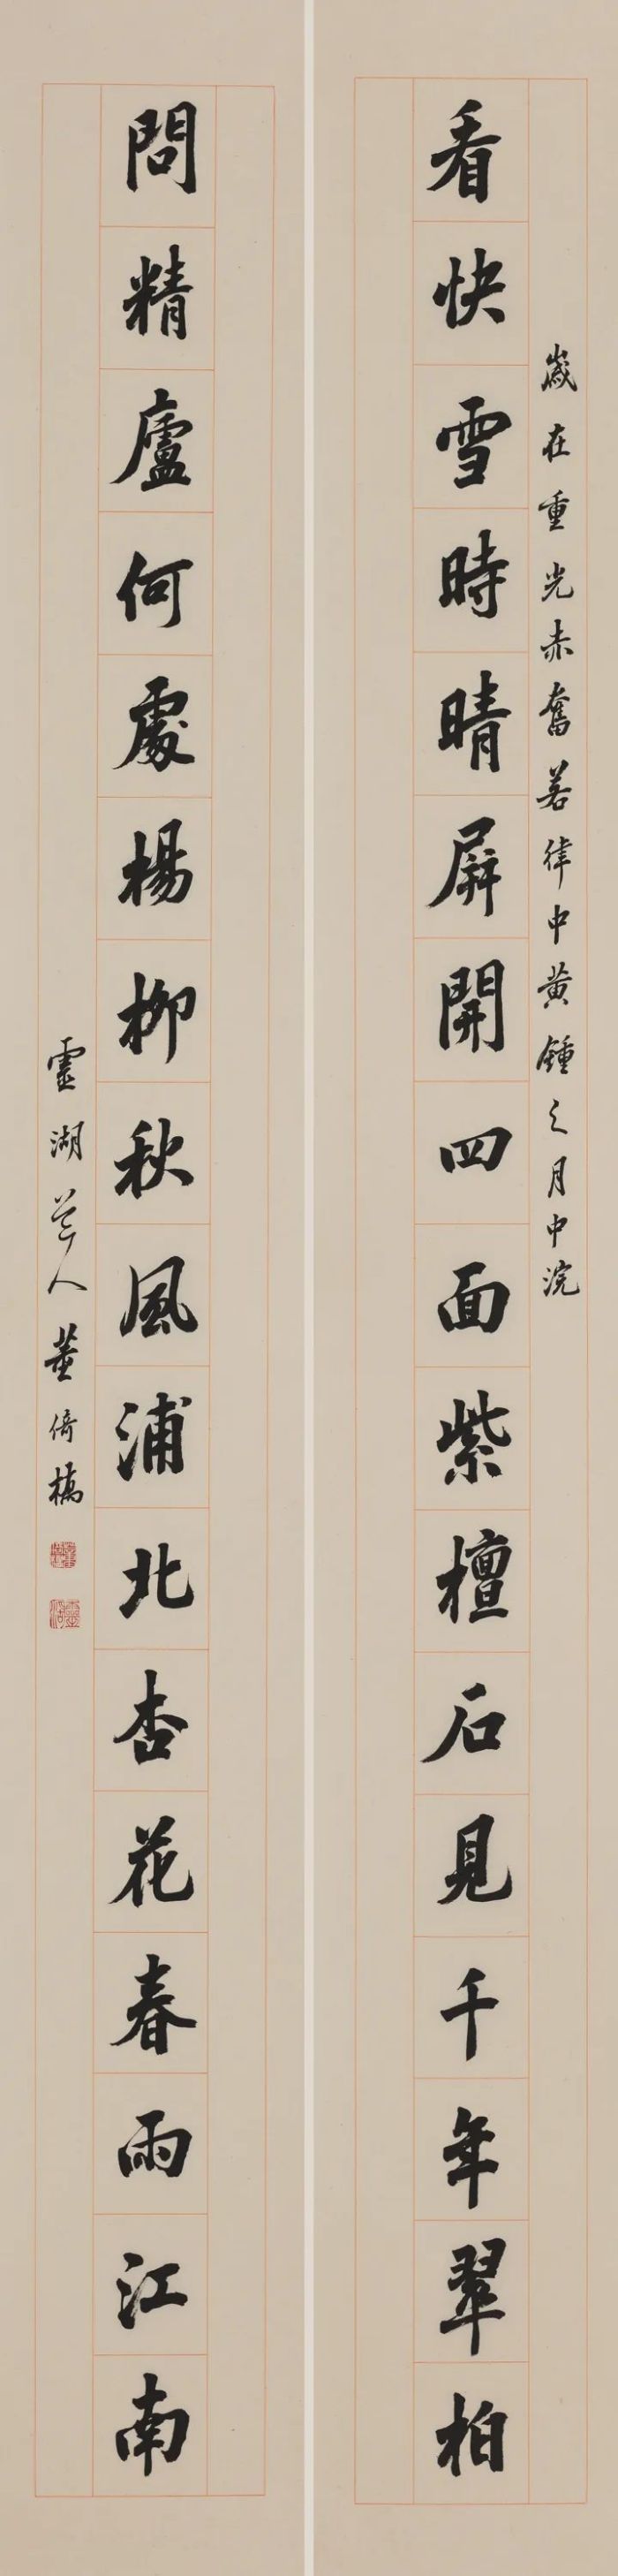 歲在重光赤奮若律中黃鍾之月中浣
看快雪時晴屏開四面紫檀石見千年翠柏
問精廬何處楊柳秋風浦北杏花春雨江南
靈湖草人董倚橋